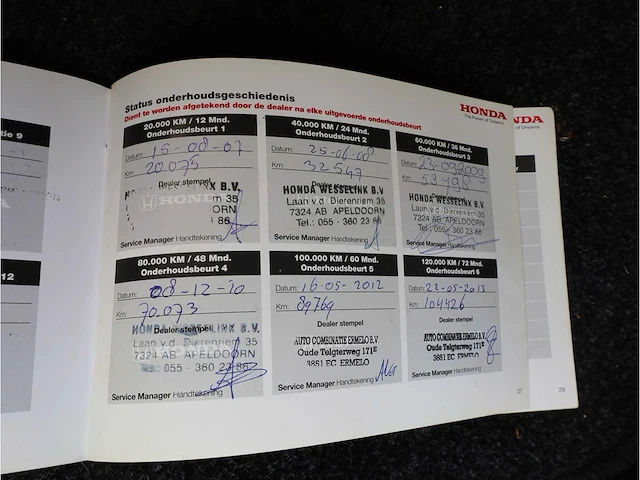 Status onderhoudsgeschiedenis
Dient te worden afgetekend door de dealer na elke uitgevoerde onderhoudsbeurt
HONDA
The Power of Dreams
20.000 KM / 12 Mnd.
Onderhoudsbeurt 1
Datum: 15-08-07
Km: 20.075
Dealer stempel
HONDA WESSELINK B.V.
m 35
ORN
86
Service Manager Handtekening
40.000 KM / 24 Mnd.
Onderhoudsbeurt 2
Datum: 25-06-08
Km: 32547
Dealer stempel
HONDA WESSELINK B.V.
Laan v.d. Dierenriem 35
7324 AB APELDOORN
Tel.: 055 - 360 23 86
Service Manager Handtekening
60.000 KM / 36 Mnd.
Onderhoudsbeurt 3
Datum: 23-09-2009
Km:
Dealer stempel
HONDA WESSELINK B.V.
Laan v.d. Dierenriem 35
7324 AB APELDOORN
Tel.: 055 - 360 23 86
Service Manager Handtekening
80.000 KM / 48 Mnd.
Onderhoudsbeurt 4
Datum: 08-12-10
Km: 70.073
Dealer stempel
HONDA WESSELINK B.V.
Laan v.d. Dierenriem 35
7324 AB APELDOORN
Tel.: 055 - 360 23 86
Service Manager Handtekening
100.000 KM / 60 Mnd.
Onderhoudsbeurt 5
Datum: 16-05-2012
Km: 89769
Dealer stempel
AUTO COMBINATIE ERMELO B.V.
Oude Telgterweg 171E
3851 EC ERMELO
Service Manager Handtekening
120.000 KM / 72 Mnd.
Onderhoudsbeurt 6
Datum: 22-05-2013
Km: 104426
Dealer stempel
AUTO COMBINATIE ERMELO B.V.
Oude Telgterweg 171E
3851 EC ERMELO
Service Manager Handtekening
27
tie 9
12
NDA
of Dreams
29